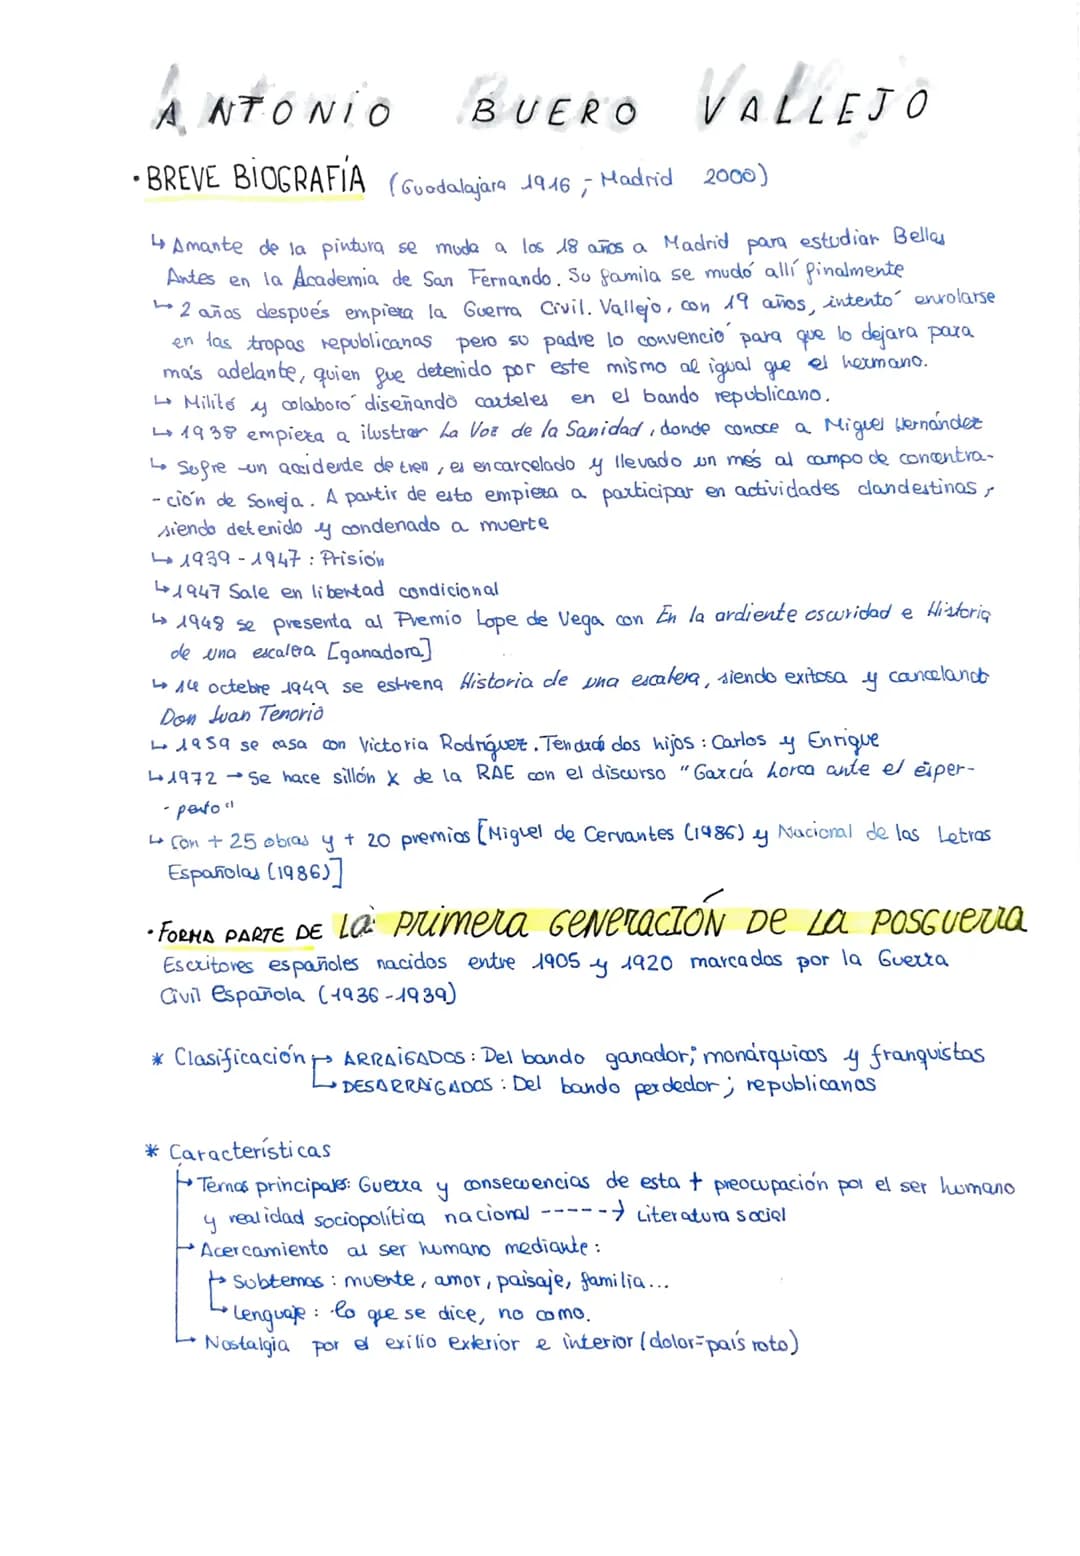 ANTONIO BUERO VALLEJO
· BREVE BIOGRAFÍA (Guadalajara 1916; Madrid 2000)
↳ Amante de la pintura se muda a los 18 años a Madrid para estudiar Bellas
Artes en la Academia de San Fernando. Su famila se mudó allí finalmente
↳ 2 años después empieza la Guerra Civil. Vallejo, con 19 años, intentó enrolarse
en las tropas republicanas pero su padre lo convenció para que lo dejara para
más adelante, quien fue detenido por este mismo al igual que el hermano.
↳ Militó y colaboró diseñando carteles en el bando republicano.
↳ 1938 empieza a ilustrar La Voz de la Sanidad, donde conoce a Miguel Hernández
↳ Sufre un accidente de tren, es encarcelado y llevado un mes al campo de concentra-
-ción de Soneja. A partir de esto empieza a participar en actividades clandestinas,
siendo detenido y condenado a muerte
↳ 1939-1947: Prisión
↳ 1947 Sale en libertad condicional
↳ 1948 se presenta al Premio Lope de Vega con En la ardiente oscuridad e Historia
de una escalera [ganadora]
↳ 14 octebre 1949 se estrena Historia de una escalera, siendo exitosa y cancelando
Don Juan Tenorio
↳ 1959 se casa con Victoria Rodríguez. Tendrá dos hijos: Carlos y Enrique
↳ 1972 → Se hace sillón X de la RAE con el discurso "García Lorca ante el esper-
-pento"
↳ Con + 25 obras y + 20 premios [Miguel de Cervantes (1986) y Nacional de las Letras
Españolas (1986)]
· FORMA PARTE DE LA PRIMERA GENERACIÓN DE LA POSGUERRA
Escritores españoles nacidos entre 1905 y 1920 marcados por la Guerra
Civil Española (1936-1939)
* Clasificación → ARRAIGADOS: Del bando ganador; monárquicos y franquistas
↳ DESARRAIGADOS: Del bando perdedor; republicanos
* Características
↳ Temas principales: Guerra y consecuencias de esta + preocupación por el ser humano
y realidad sociopolítica nacional -----→ Literatura social
→ Acercamiento al ser humano mediante:
↳ Subtemas: muerte, amor, paisaje, familia...
↳ Lenguaje: lo que se dice, no como.
↳ Nostalgia por el exilio exterior e interior (dolor=país roto)